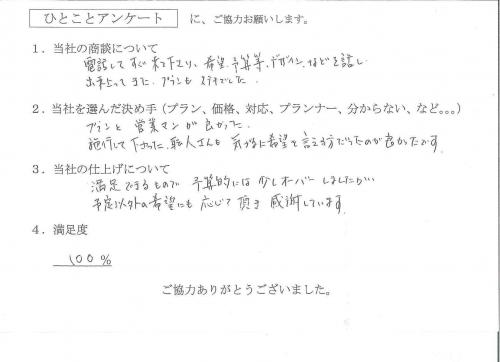 ひとことアンケート に、ご協力お願いします。
1．当社の商談について
電話してすぐ来て下さり、希望、予算等、デザインなどを話し
出来上ってきた、プランもステキでした。
2．当社を選んだ決め手（プラン、価格、対応、プランナー、分からない、など。。。）
プランと営業マンが良かった
施行して下さった、職人さんも気がるに希望を言える方だったのが良かったです。
3．当社の仕上げについて
満足できるもので 予算的には少しオーバーしましたが、
予定以外の希望にも応じて頂き 感謝しています。
4．満足度
100％
ご協力ありがとうございました。